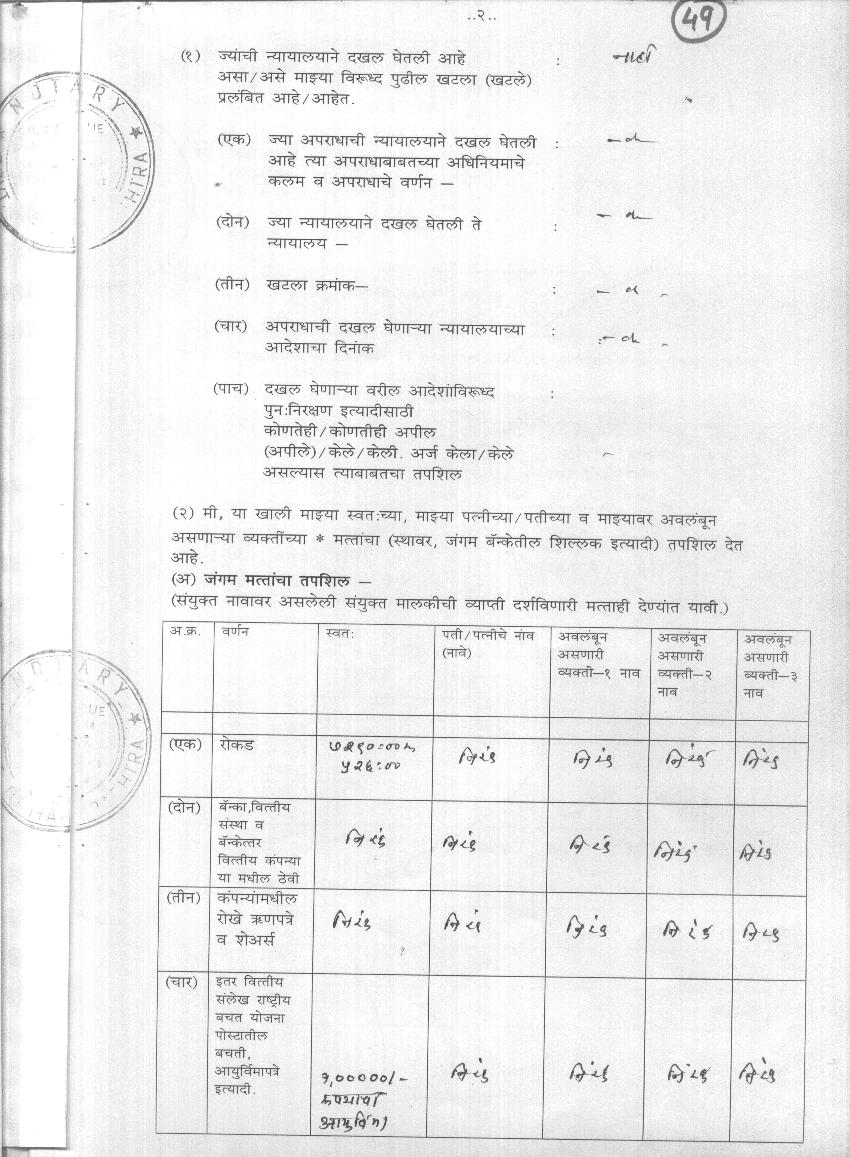 ..२..
49
(१) ज्यांची न्यायालयाने दखल घेतली आहे : नाही
असा/असे माझ्या विरूध्द पुढील खटला (खटले)
प्रलंबित आहे/आहेत.
(एक) ज्या अपराधाची न्यायालयाने दखल घेतली :
आहे त्या अपराधाबाबतच्या अधिनियमाचे
कलम व अपराधाचे वर्णन –
(दोन) ज्या न्यायालयाने दखल घेतली ते :
न्यायालय –
(तीन) खटला क्रमांक– :
(चार) अपराधाची दखल घेणाऱ्या न्यायालयाच्या :
आदेशाचा दिनांक
(पाच) दखल घेणाऱ्या वरील आदेशांविरूध्द :
पुन:निरक्षण इत्यादीसाठी
कोणतेही/कोणतीही अपील
(अपीले)/केले/केली. अर्ज केला/केले
असल्यास त्याबाबतचा तपशिल
(२) मी, या खाली माझ्या स्वत:च्या, माझ्या पत्नीच्या/पतीच्या व माझ्यावर अवलंबून
असणाऱ्या व्यक्तींच्या * मत्तांचा (स्थावर, जंगम बॅन्केतील शिल्लक इत्यादी) तपशिल देत
आहे.
(अ) जंगम मत्तांचा तपशिल –
(संयुक्त नावावर असलेली संयुक्त मालकीची व्याप्ती दर्शविणारी मत्ताही देण्यांत यावी.)
अ.क्र. वर्णन स्वत: पती/पत्नीचे नांव अवलंबून अवलंबून अवलंबून
(नावे) असणारी असणारी असणारी
व्यक्ती–१ नाव व्यक्ती–२ व्यक्ती–३
नाव नाव
(एक) रोकड निरंक निरंक निरंक निरंक
(दोन) बॅन्का,वित्तीय
संस्था व
बॅन्केत्तर निरंक निरंक निरंक निरंक निरंक
वित्तीय कंपन्या
या मधील ठेवी
(तीन) कंपन्यांमधील
रोखे ऋणपत्रे निरंक निरंक निरंक निरंक निरंक
व शेअर्स
(चार) इतर वित्तीय
संलेख राष्ट्रीय
बचत योजना
पोस्टातील
बचती,
आयुर्विमापत्रे १,०००००/- निरंक निरंक निरंक निरंक
इत्यादी. रूपयाचा
आयुर्विमा
NOTARY
NOTARY